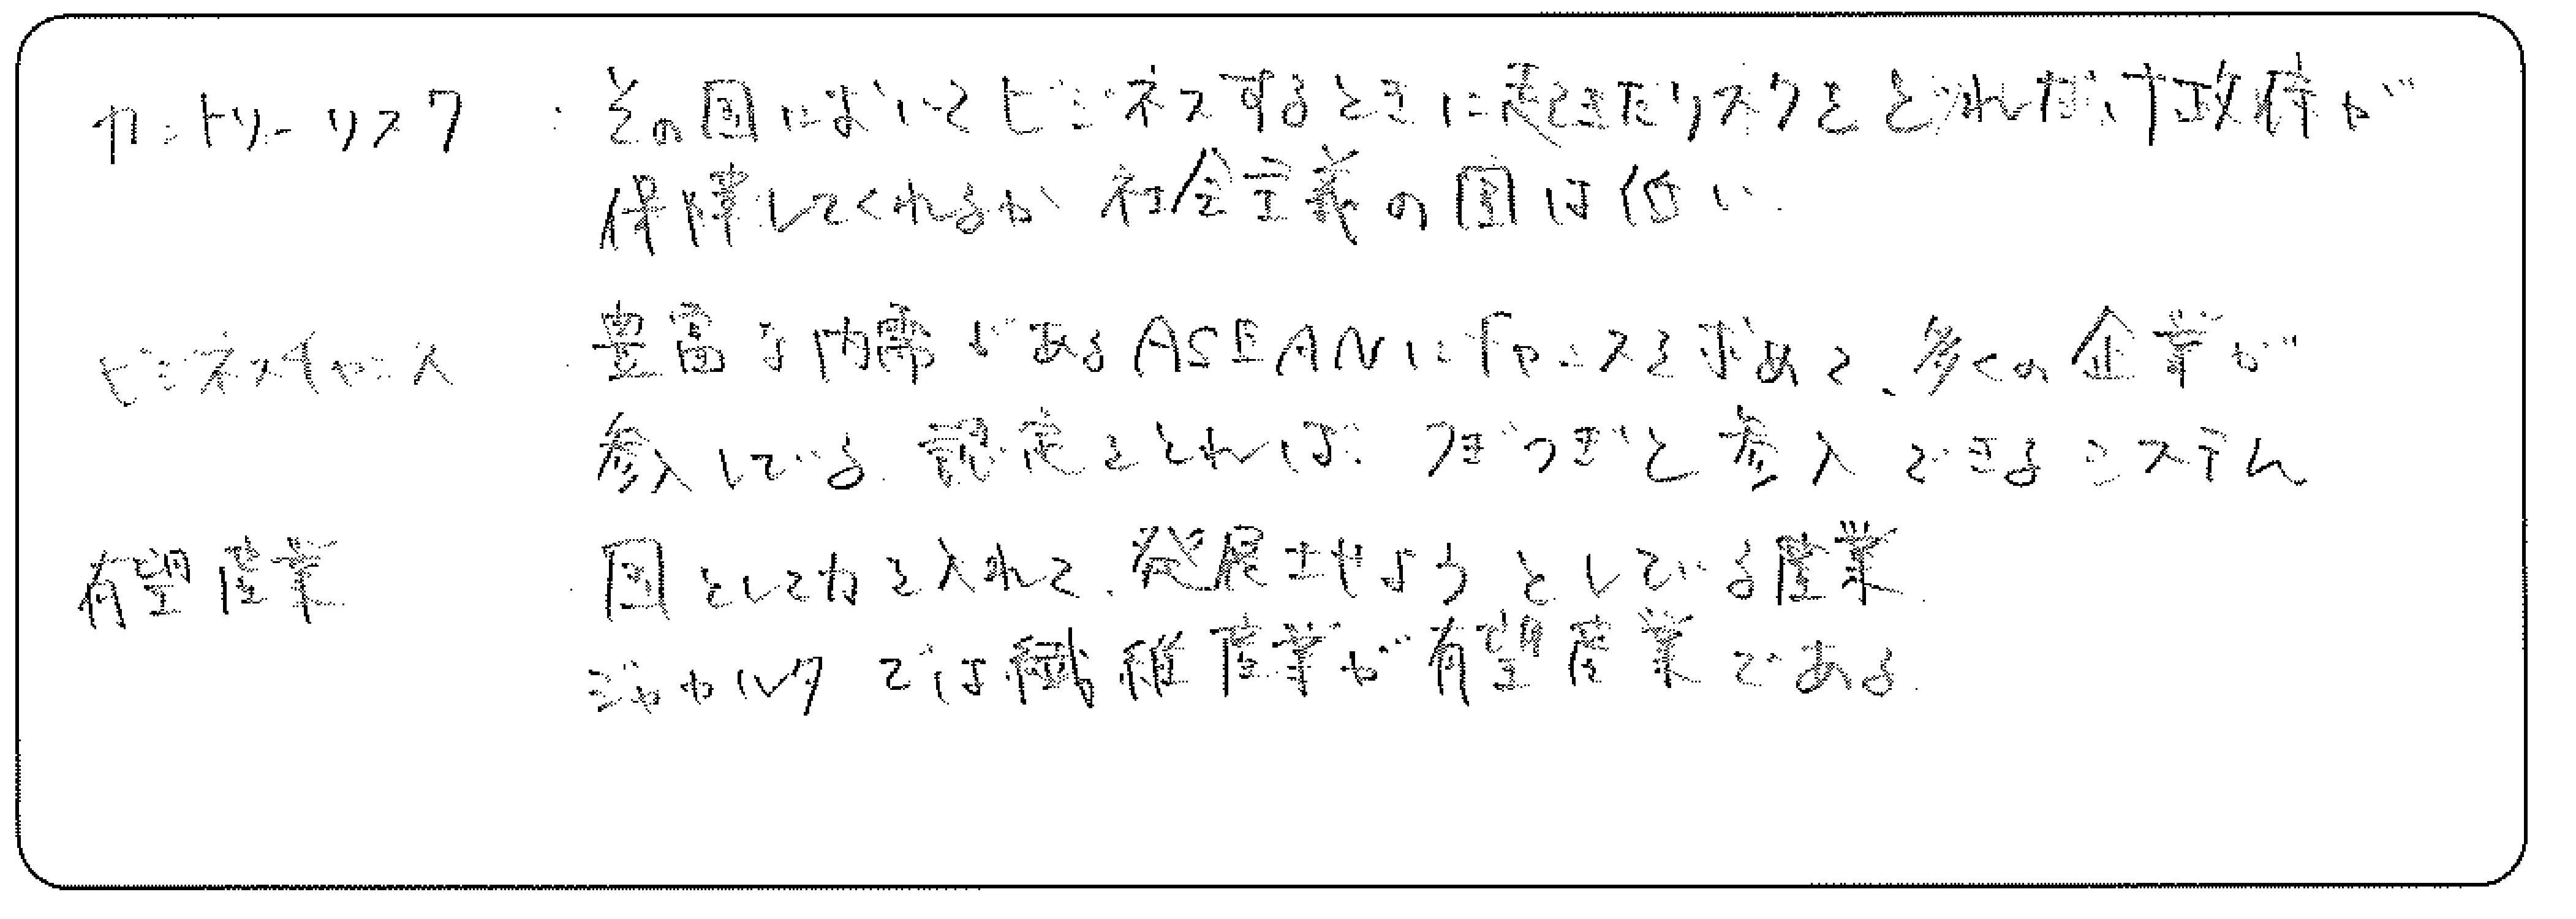 カントリーリスク ・その国においてビジネスするときに起きたリスクをどれだけ政府が
保障してくれるか 社会主義の国は低い.
ビジネスチャンス ・豊富な内需があるASEANにチャンスを求めて、多くの企業が
参入している. 認定をとれば、つぎつぎと参入できるシステム
有望産業 ・国として力を入れて、発展させようとしている産業.
ジャカルタでは繊維産業が有望産業である.